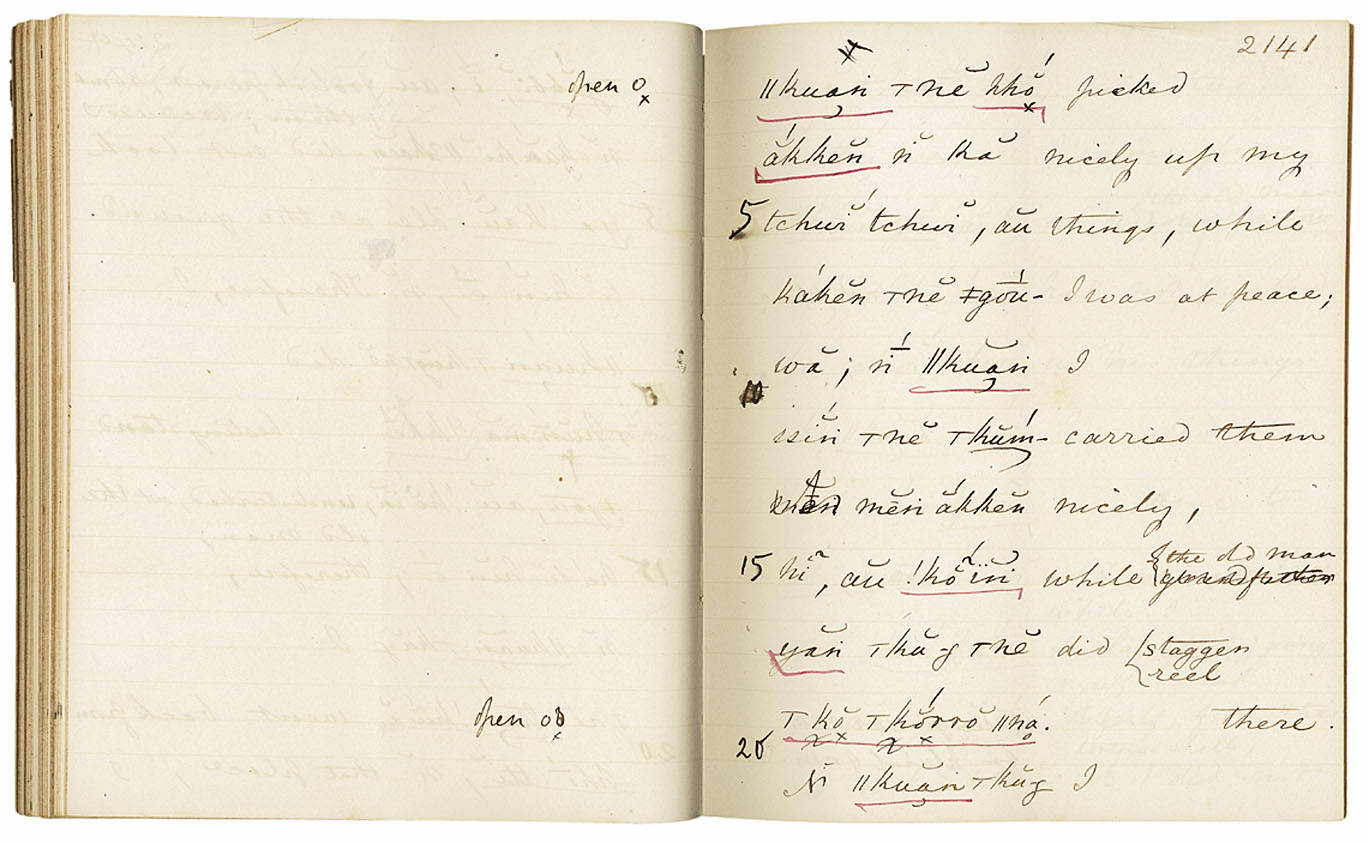 open o
open o
2141
ǁkuạn̄ ⊤nĕ hhŏ́ picked
ắkkĕn n̆ kă nicely up my
5 tchuĭ tchuĭ, au things, while
kákĕn ⊤nĕ ǂgṓu- I was at peace;
wă; n̄ ǁkuạn̄ I
10
ssín̄ ⊤nĕ ⊤kŭḿ- carried them
mĕn̄ ắkkĕn nicely,
15 hĭ, au !kŏ́ïn̄ while { the old man grandfather
yăn̄ ⊤kŭ-g ⊤nĕ did { stagger
reel
⊤kŏ ⊤kŏ́rrŏ ǁná. there.
20
N̄ ǁkuạn ⊤kŭ-g I